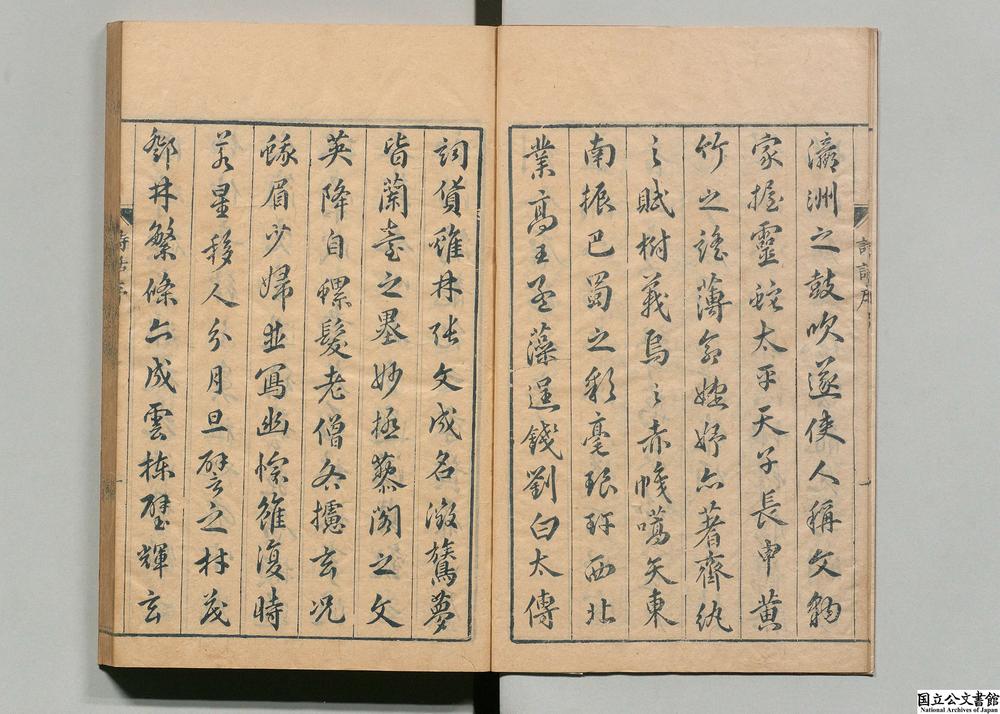 瀛洲之鼓吹遂使人稱文豹
家握靈蛇太平天子長申黃
竹之謠薄命婕妤亦著齊紈
之賦樹義烏之赤幟噶矢東
南振巴蜀之彩毫琅玕西北
業高王孟藻逞錢劉白太傅
詞貨雞林張文成名激鶩夢
皆蘭臺之墨妙極藜閣之文
英降自螺髮老僧各攄玄况
蛾眉少婦並寫幽悰雖復時
若星移人分月旦譬之林茂
鄧林繁條亦成雲棟璧輝玄
詩話序
国立公文書館
National Archives of Japan